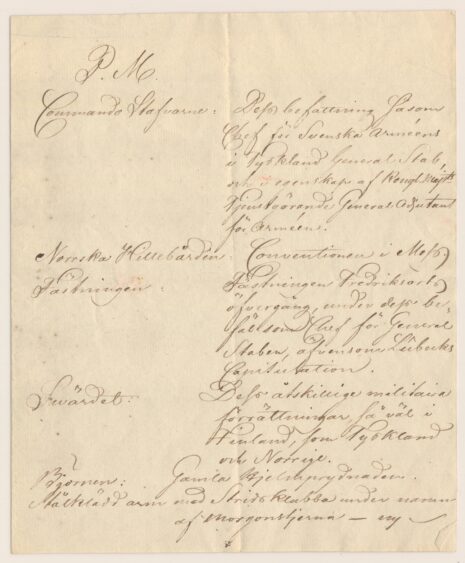 P. M.
Commando Stafvarne: Dess befattning såsom
Chef för Svenska Arméens
i Tyskland General Stab,
och i egenskap af Kongl. Maj:ts
Tjenstgörande General Adjutant
för Arméen.
Norrska Hillebården: Conventionen i Moss
Fästningen: Fästningen Fredriksorts
öfvergång, under dess be-
fäl som Chef för General
Staben, äfvensom Lübecks
Capitulation.
Svärdet: Dess åtskillige militaira
förrättningar, så väl i
Finland, som Tyskland
och Norrige.
Björnen: Gamla Hjelmprydnaden.
Stålklädd arm med Stridsklubba under namn
af Morgonstjerna — ny